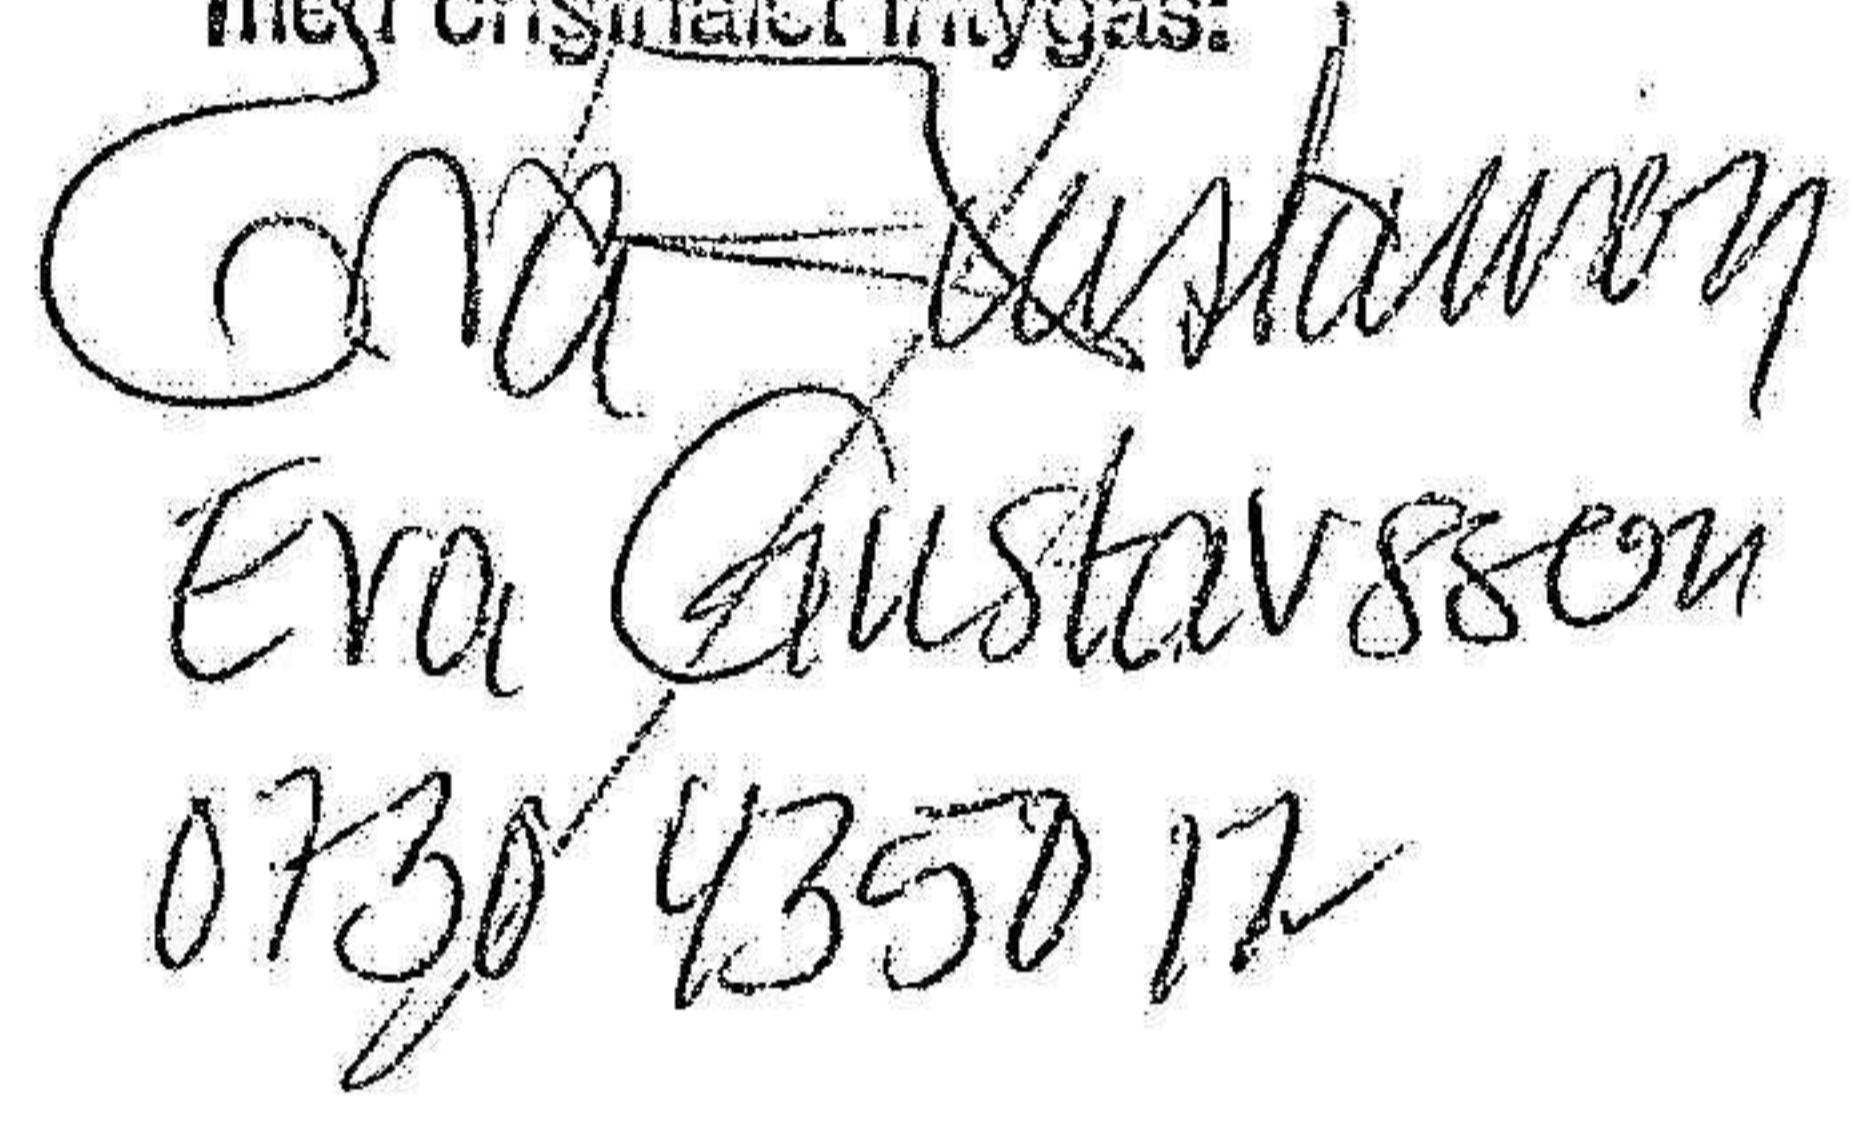 med originalet intygas:
Eva Gustavsson
Eva Gustavsson
0730 4350 12